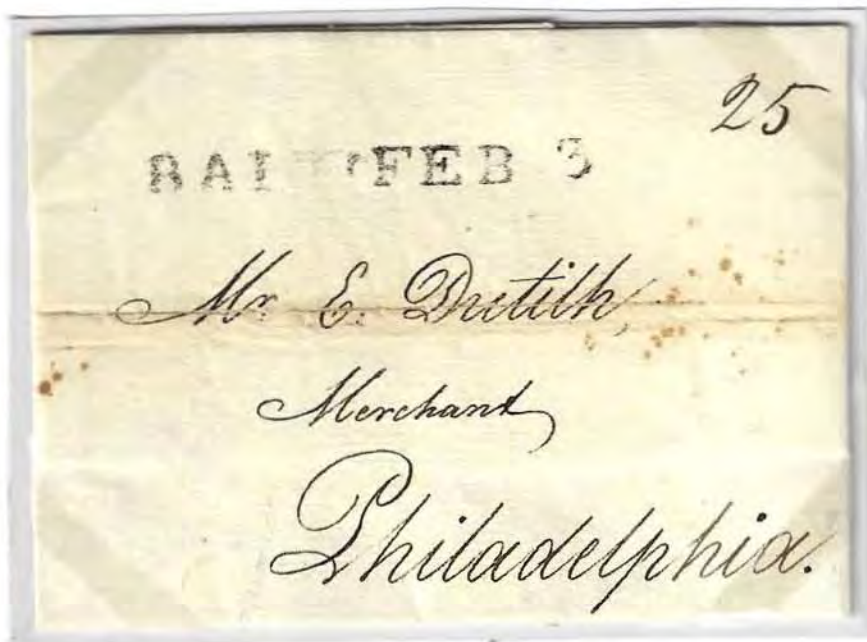 25
FEB 3
Mr. E. Dutilh,
Merchant
Philadelphia.